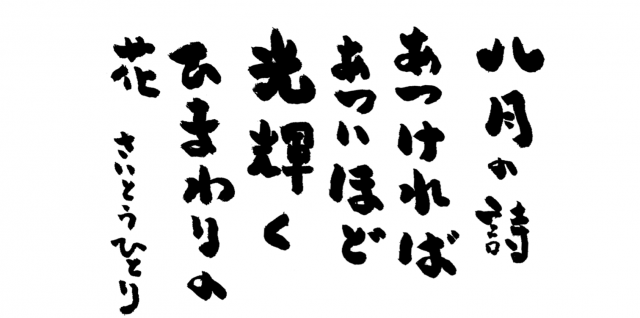 八月の詩
あつければ
あついほど
光輝く
ひまわりの
花 さいとうひとり